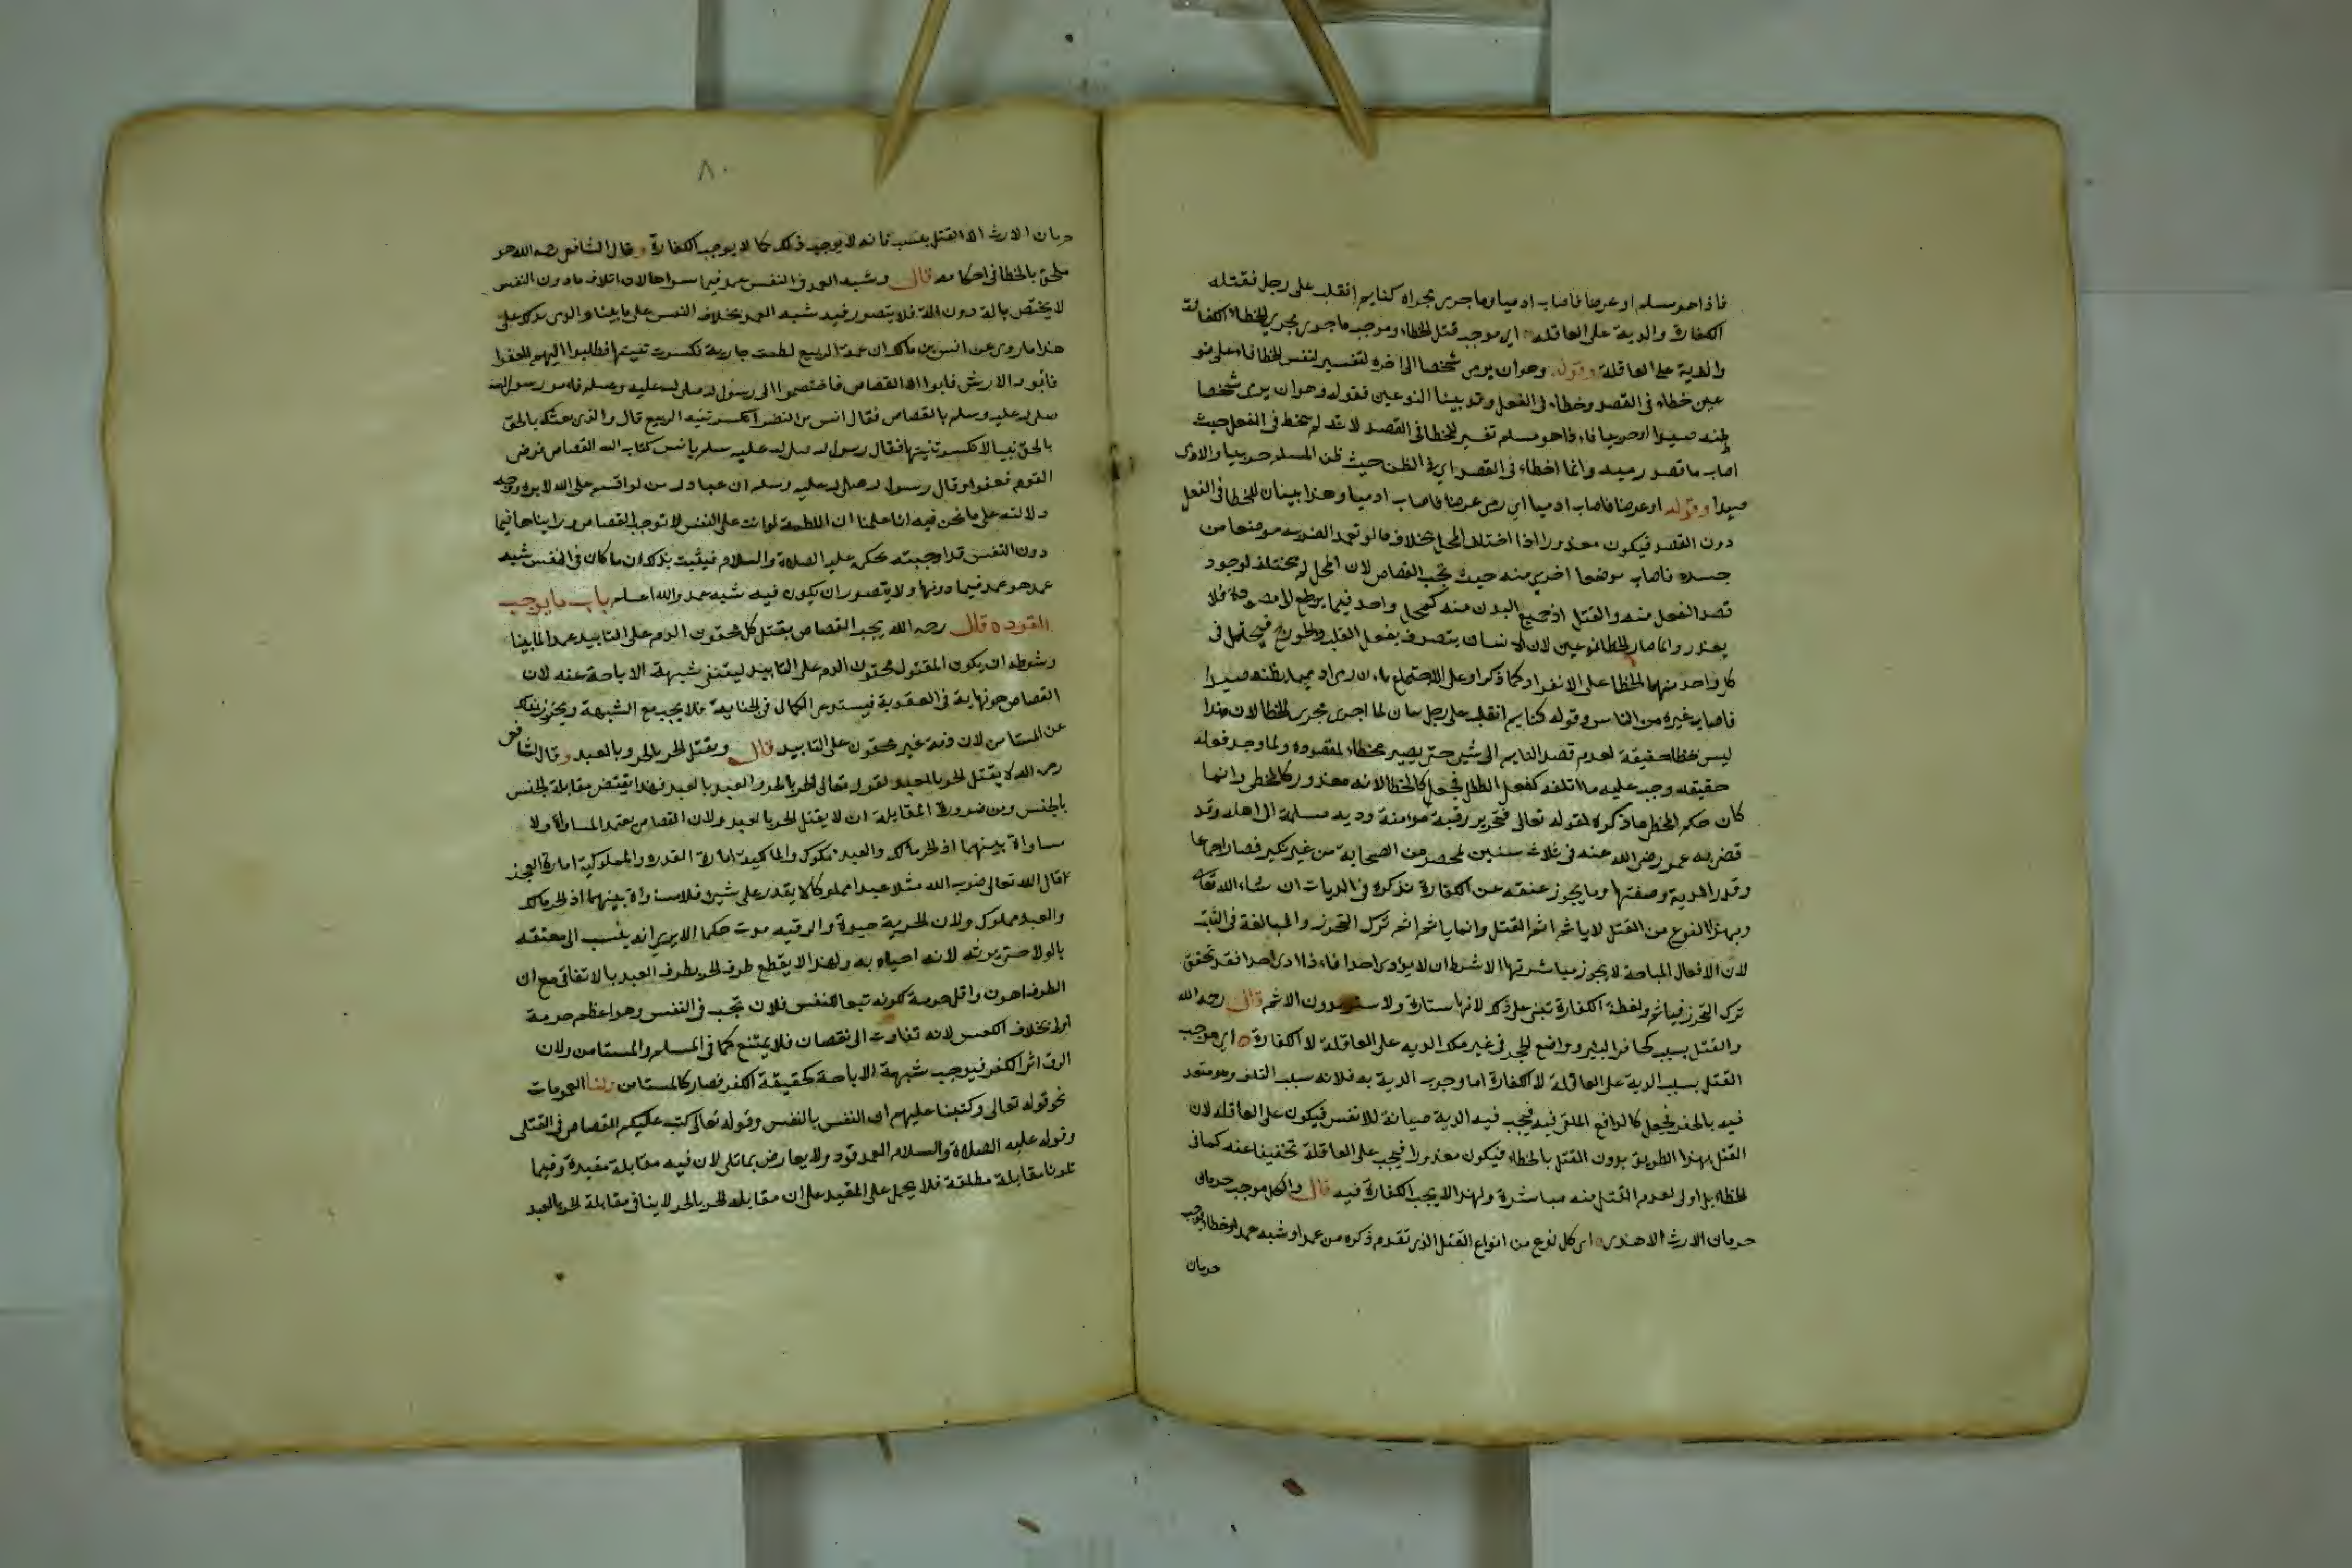 فاذا هو مسلم او عرضا فاصاب ادميا وما جرى مجراه كنايم انقلب على رجل فقتله
الكفارة والدية على العاقلة اي موجب قتل الخطاء وموجب ما جرى مجرى الخطاء الكفارة
والدية على العاقلة وقوله وهو ان يرمى شخصا الى اخره تفسير لنفس الخطا فانه على نو
عين خطاء في القصد وخطاء في الفعل وقد بينا النوعين فقوله وهو ان يرمى شخصا
ظنه صيدا او حربيا فاذا هو مسلم تفسير للخطا في القصد لانه لم يخط في الفعل حيث
اصاب ما قصد رميه وانما اخطاء في القصد اي في الظن حيث ظن المسلم حربيا والادمى
صيدا وقوله او عرضا فاصاب ادميا اي رمى عرضا فاصاب ادميا وهذا بيان للخطا في الفعل
دون القصد فيكون معذورا اذا اختلف المحل بخلاف ما لو تعمد الضرب موضعا من
جسده فاصاب موضعا اخر منه حيث يجب القصاص لان المحل لم يختلف لوجود
قصد الفعل منه والقتل اذ جميع البدن منه كمحل واحد فيما يرجع الى مقصوده فلا
يعذر وانما صار الخطا نوعين لان الانسان يتصرف بفعل القلب والجوارح فيحتمل في
كل واحد منهما الخطا على الانفراد كما ذكر او على الاجتماع بان رمى ادميا يظنه صيدا
فاصاب غيره من الناس وقوله كنايم انقلب على رجل بيان لما اجرى مجرى الخطا لان هذا
ليس بخطا حقيقة لعدم قصد النايم الى شئ حتى يصير مخطئا لمقصوده ولما وجد فعله
حقيقة وجب عليه ما اتلفه كفعل الطفل فجعل كالخطا لانه معذور كالمخطى وانما
كان حكم المخطى ما ذكره لقوله تعالى فتحرير رقبة مؤمنة ودية مسلمة الى اهله وقد
قضى به عمر رضى الله عنه في ثلاث سنين بمحضر من الصحابة من غير نكير فصار اجماعا
وقدر الدية وصفتها وما يجوز عتقه عن الكفارة نذكره في الديات ان شاء الله تعالى
وبهذا النوع من القتل لا ياثم اثم القتل وانما ياثم اثم ترك التحرز والمبالغة في التثبت
لان الافعال المباحة لا يجوز مباشرتها الا بشرط ان لا يوذى احدا فاذا اذى احدا فقد تحقق
ترك التحرز فياثم ولفظة الكفارة تبنى على ذلك لانها ستارة ولا ستر بدون الاثم قال رحمه الله
والقتل بسبب كحافر البئر وواضع الحجر في غير ملكه الدية على العاقلة لا الكفارة اي موجب
القتل بسبب الدية على العاقلة لا الكفارة اما وجوب الدية به فلانه سبب التلف وهو متعد
فيه بالحفر فجعل كالدافع الملقى فيه فيجب فيه الدية صيانة للانفس فيكون على العاقلة لان
القتل بهذا الطريق بدون القتل بالخطاء فيكون معذورا فيجب على العاقلة تخفيفا عنه كما في
الخطاء بل اولى لعدم القتل منه مباشرة ولهذا لا يجب الكفارة فيه قال والكل موجب حرمان
حرمان الارث الا هذا اي كل نوع من انواع القتل الذى تقدم ذكره من عمد او شبه عمد او خطا يوجب
حرمان
٨٠
حرمان الارث الا القتل بسبب فانه لا يوجب ذلك كما لا يوجب الكفارة وقال الشافعى رحمه الله هو
ملحق بالخطا في احكامه قال وشبه العمد في النفس عمد فيما سواها لان اتلاف ما دون النفس
لا يختص بالة دون الة فلا يتصور فيه شبه العمد بخلاف النفس على ما بينا والذى يدلك على
هذا ما روى عن انس بن مالك ان عمة الربيع لطمت جارية فكسرت ثنيتها فطلبوا اليهم العفو ا
فابو والارش فابوا الا القصاص فاختصموا الى رسول الله صلى الله عليه وسلم فامر رسول الله
صلى الله عليه وسلم بالقصاص فقال انس بن النضر اتكسر ثنية الربيع قال والذى بعثك بالحق
بالحق نبيا لا تكسر ثنيتها فقال رسول الله صلى الله عليه وسلم يا انس كتاب الله القصاص فرضى
القوم فعفوا وقال رسول الله صلى الله عليه وسلم ان عباد الله من لو اقسم على الله لابره ووجه
دلالته على ما نحن فيه انا علمنا ان اللطمة لو اتت على النفس لا توجب القصاص ورايناها فيما
دون النفس قد اوجبته بحكمه عليه الصلاة والسلام فيثبت بذلك ان ما كان في النفس شبه
عمد هو عمد فيما دونها ولا يتصور ان يكون فيه شبه عمد والله اعلم باب ما يوجب
القود ه قال رحمه الله يجب القصاص بقتل كل محقون الدم على التابيد عمدا لما بينا
وشرطه ان يكون المقتول محقون الدم على التابيد لينتفى شبهة الاباحة عنه لان
القصاص هو نهاية في العقوبة فيستدعى الكمال في الجناية فلا يجب مع الشبهة ويحترز بذلك
عن المستامن لان دمه غير محقون على التابيد قال ويقتل الحر بالحر وبالعبد وقال الشافعى
رحمه الله لا يقتل الحر بالعبد لقوله تعالى الحر بالحر والعبد بالعبد فهذا يقتضى مقابلة الجنس
بالجنس ومن ضرورة المقابلة ان لا يقتل الحر بالعبد ولان القصاص يعتمد المساواة ولا
مساواة بينهما اذ الحر مالك والعبد مملوك والمالكية امارة القدره والمملوكية امارة العجز
قال الله تعالى ضرب الله مثلا عبدا مملوكا لا يقدر على شئ فلا مساواة بينهما اذ الحر مالك
والعبد مملوك ولان الحرية حيوة والرقيه موت حكما الا يرى انه ينسب الى معتقه
بالولا حتى يرثه لانه احياه به ولهذا لا يقطع طرف الحر بطرف العبد بالاتفاق مع ان
الطرف اهون واقل حرمة لكونه تبعا للنفس فلان تجب في النفس وهو اعظم حرمة
اولى بخلاف العكس لانه تفاوت الى نقصان فلا يمتنع كما في المسلم والمستامن ولان
الرق اثر الكفر فيوجب شبهة الاباحة كحقيقة الكفر فصار كالمستامن ولنا العمومات
نحو قوله تعالى وكتبنا عليهم ان النفس بالنفس وقوله تعالى كتب عليكم القصاص في القتلى
وقوله عليه الصلاة والسلام العمد قود ولا يعارض بما تلى لان فيه مقابلة مقيدة وفيما
تلونا مقابلة مطلقة فلا يحمل على المقيد على ان مقابلة الحر بالحر لا ينافى مقابلة الحر بالعبد